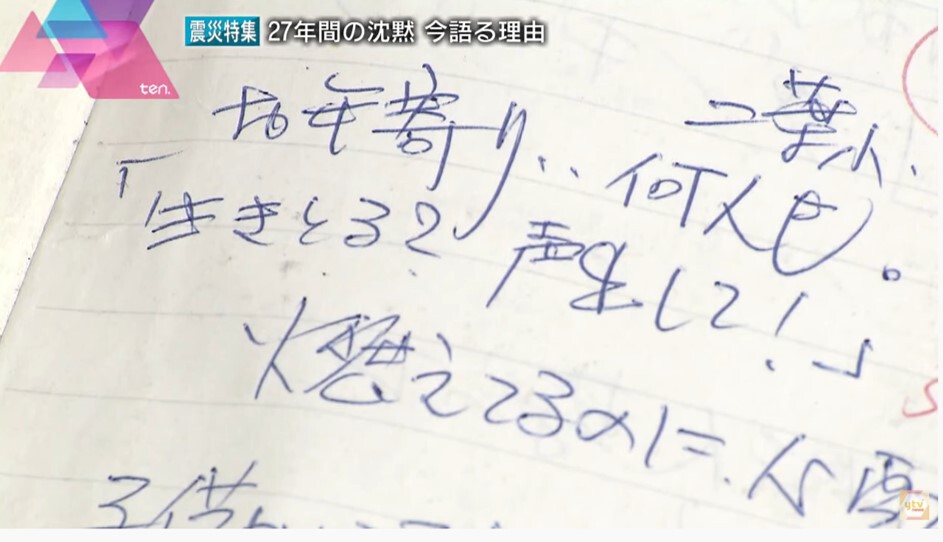 震災特集 27年間の沈黙 今語る理由
ten.
お年寄り、、 二葉小、
何人も。
「生きとる?
声出して!」
燃えてるのに、
ytv